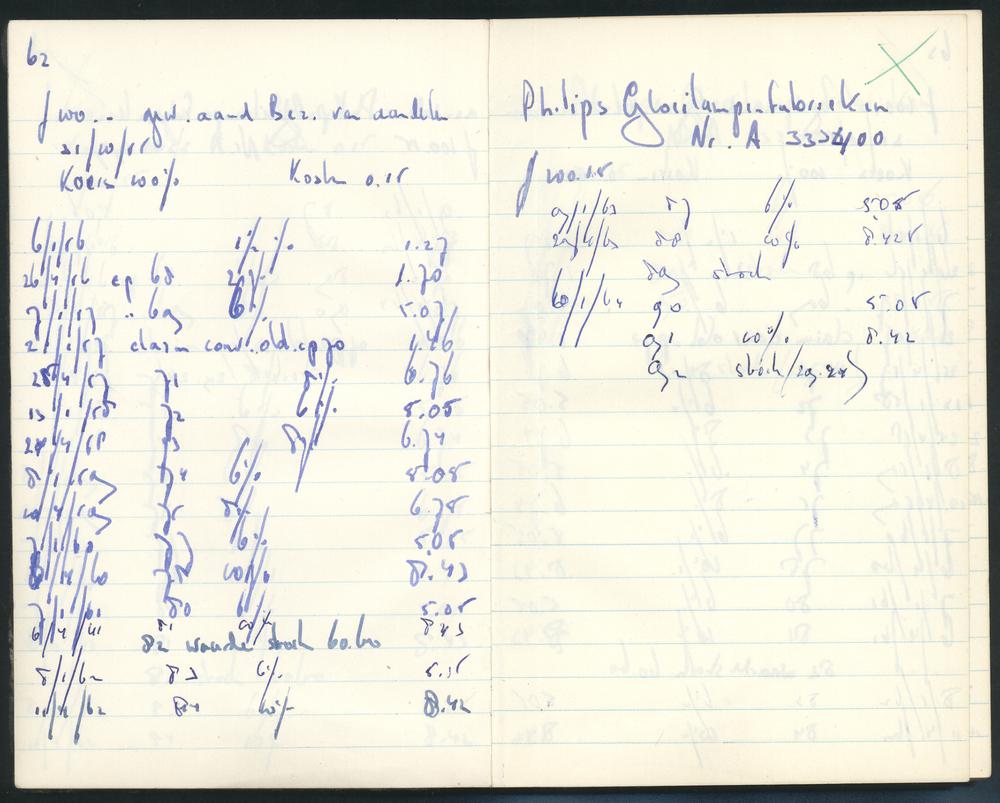 62
f 100.-- gew. aand Bez. van aandelen
31/10/55
Koers 100% Kosten 0.15
6/1/56 1½% 1.27
26/4/56 cp 68 2% 1.70
7/1/57 " 69 6% 5.07
2/1/57 claim conv. old. cp 70 1.46
25/4/57 71 8% 6.76
13/1/58 72 6% 5.05
28/4/58 73 8% 6.74
8/1/59 74 6% 5.05
10/4/59 75 8% 6.75
7/1/60 77 6% 5.05
8/4/60 78 10% 8.43
7/1/61 80 6% 5.05
6/4/61 81 10% 8.43
82 waarde stock 60.60
8/1/62 83 6% 5.05
11/4/62 84 10% 8.42
Philips Gloeilampenfabrieken
Nr. A 332400
f 100.15
9/1/63 87 6% 5.05
29/4/63 88 10% 8.425
89 stock
6/1/64 90 5.05
91 10% 8.42
92 stock (29.28)